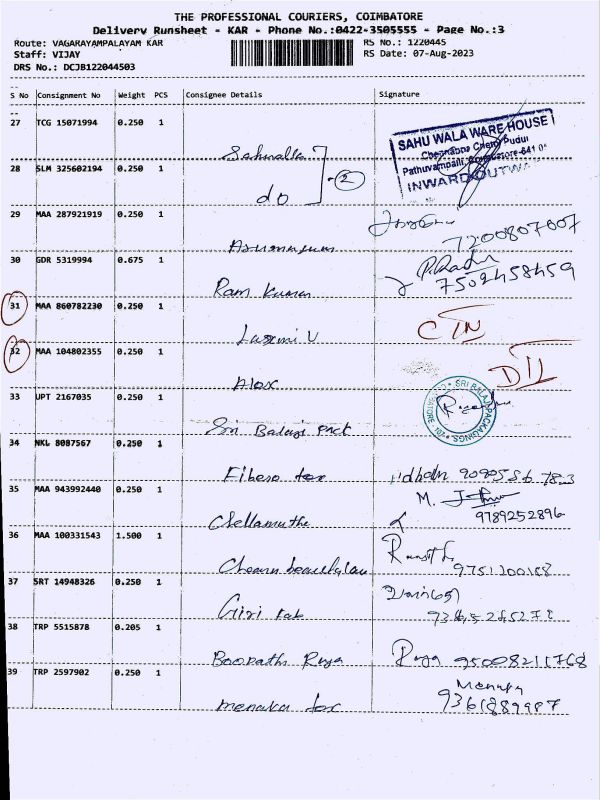 THE PROFESSIONAL COURIERS, COIMBATORE
Delivery Runsheet - KAR - Phone No.:0422-3505555 - Page No.:3
Route: VAGARAYAMPALAYAM KAR RS No.: 1220445
Staff: VIJAY RS Date: 07-Aug-2023
DRS No.: DCJB122044503
S No Consignment No Weight PCS Consignee Details Signature
27 TCG 15071994 0.250 1
SAHU WALA WARE HOUSE
Pudur
INWARD/OUTW
28 SLM 325602194 0.250 1
2
do
29 MAA 287921919 0.250 1
7200807007
30 GDR 5319994 0.675 1
Ram Kumar
7502458459
31 MAA 860782230 0.250 1
Laxmi U CTN
32 MAA 104802355 0.250 1
Alox
33 UPT 2167035 0.250 1
SRI BALAJI PACKAGINGS
Sri Balaji Pack
34 NKL 8087567 0.250 1
Fibero tex
35 MAA 943992440 0.250 1
M.
Chellamuthu 9789252896
36 MAA 100331543 1.500 1
37 SRT 14948326 0.250 1
Giri fab
38 TRP 5515878 0.205 1
Boopathi Raja Raja 95008211768
39 TRP 2597902 0.250 1
Menaka
menaka tex 9361889987